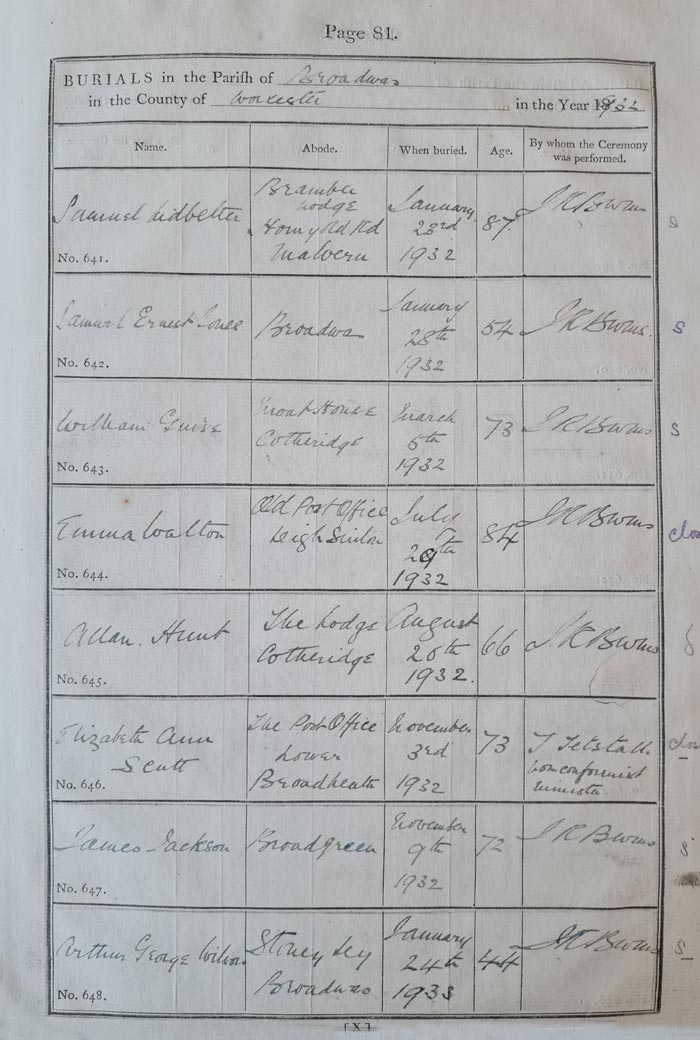 Page 81.
BURIALS in the Parish of Broadwas
in the County of Worcester in the Year 1932
Name.
Abode.
When buried.
Age.
By whom the Ceremony
was performed.
Samuel Lidbetter
No. 641.
Bramber
Lodge
Hornyold Rd
Malvern
January
23rd
1932
87
S
Samuel Ernest Jones
No. 642.
Broadwas
January
28th
1932
54
S
William Guise
No. 643.
Moat House
Cotheridge
March
5th
1932
73
S
Emma Walton
No. 644.
Old Post Office
Leigh Sinton
July
29th
1932
84
clos
Allan Hunt
No. 645.
The Lodge
Cotheridge
August
26th
1932.
66
Elizabeth Ann
Scutt
No. 646.
The Post Office
Lower
Broadheath
November
3rd
1932
73
nonconformist
minister
clos
James Jackson
No. 647.
Broadgreen
November
9th
1932
72
S
Arthur George Wilson
No. 648.
Stoney Ley
Broadwas
January
24th
1933
44
S
[X]